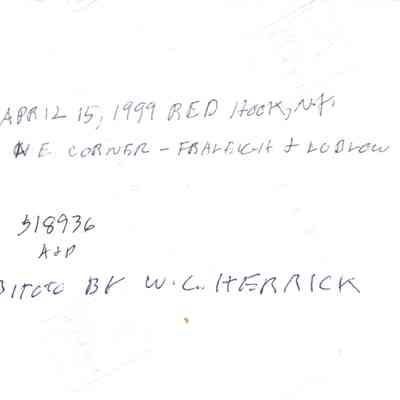 APRIL 15, 1999 RED HOOK, N.Y.
N.E. CORNER - FRALEIGH + LUDLOW
318936
A&P
PHOTO BY W.C. HERRICK